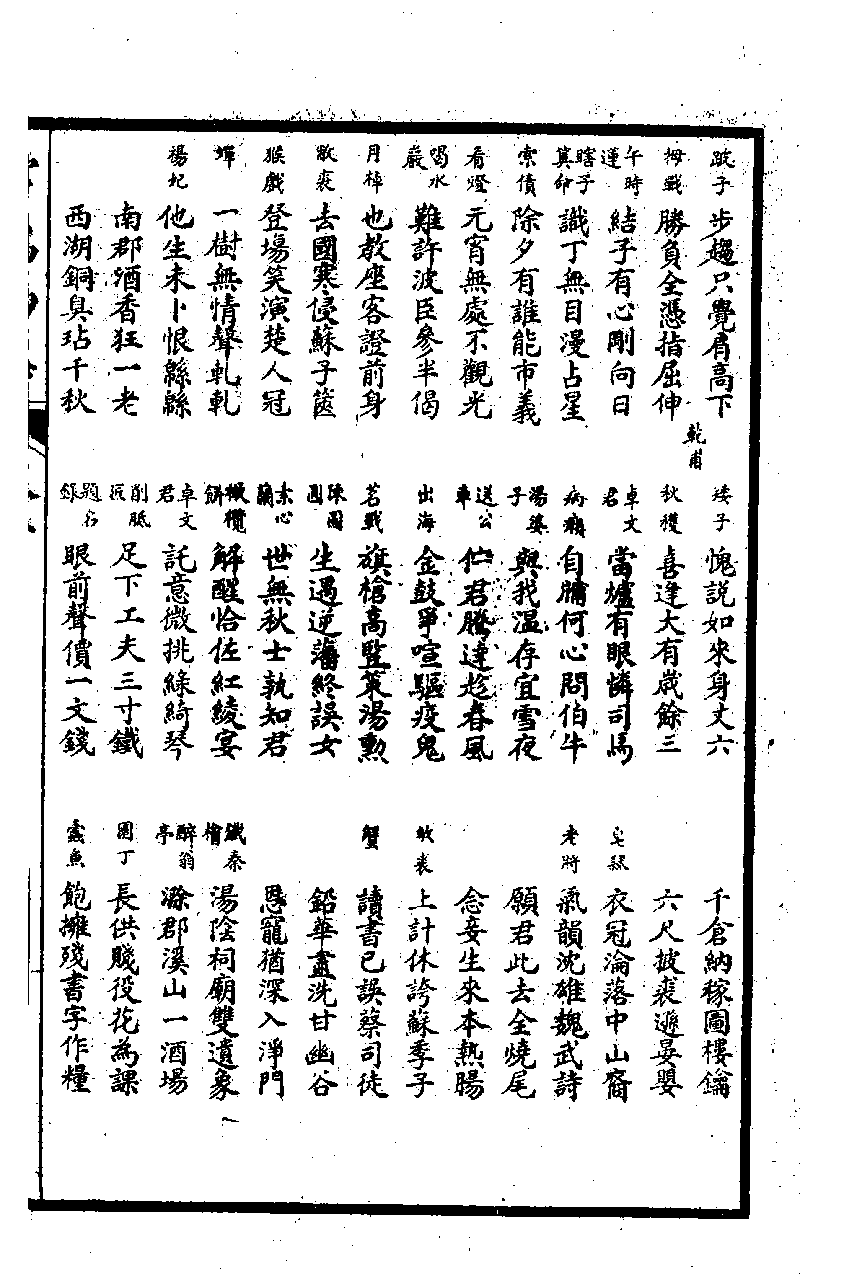 跛子 步趨只覺肩高下 矮子 愧說如來身丈六 千倉納稼圖樓鑰
拇戰 勝負全憑指屈伸 乾甫 秋穫 喜逢大有歲餘三 六尺披裘遜晏嬰
午時蓮 結子有心剛向日 卓文君 當爐有眼憐司馬 皂隸 衣冠淪落中山裔
瞎子算命 識丁無目漫占星 病癩 自牖何心問伯牛 老將 氣韻沈雄魏武詩
索債 除夕有誰能市義 湯婆子 與我溫存宜雪夜 願君此去全燒尾
看燈 元宵無處不觀光 送公車 伫君騰達趁春風 念妾生來本熱腸
喝水巖 難許波臣參半偈 出海 金鼓爭喧驅疫鬼 敝裘 上計休誇蘇季子
月棹 也教座客證前身 茗戰 旗槍高豎策湯勳 蟹 讀書已誤蔡司徒
敝裘 去國寒侵蘇子篋 陳圓圓 生遇逆藩終誤女 鉛華盡洗甘幽谷
猴戲 登場笑演楚人冠 素心蘭 世無秋士孰知君 恩寵猶深入淨門
蟬 一樹無情聲軋軋 橄欖餅 解醒恰佐紅綾宴 鐵秦檜 湯陰祠廟雙遺象
楊妃 他生未卜恨緜緜 卓文君 託意微挑綠綺琴 醉翁亭 滁郡溪山一酒場
南郡酒香狂一老 削胝匠 足下工夫三寸鐵 園丁 長供賤役花為課
西湖銅臭玷千秋 題名錄 眼前聲價一文錢 蠹魚 飽擁殘書字作糧